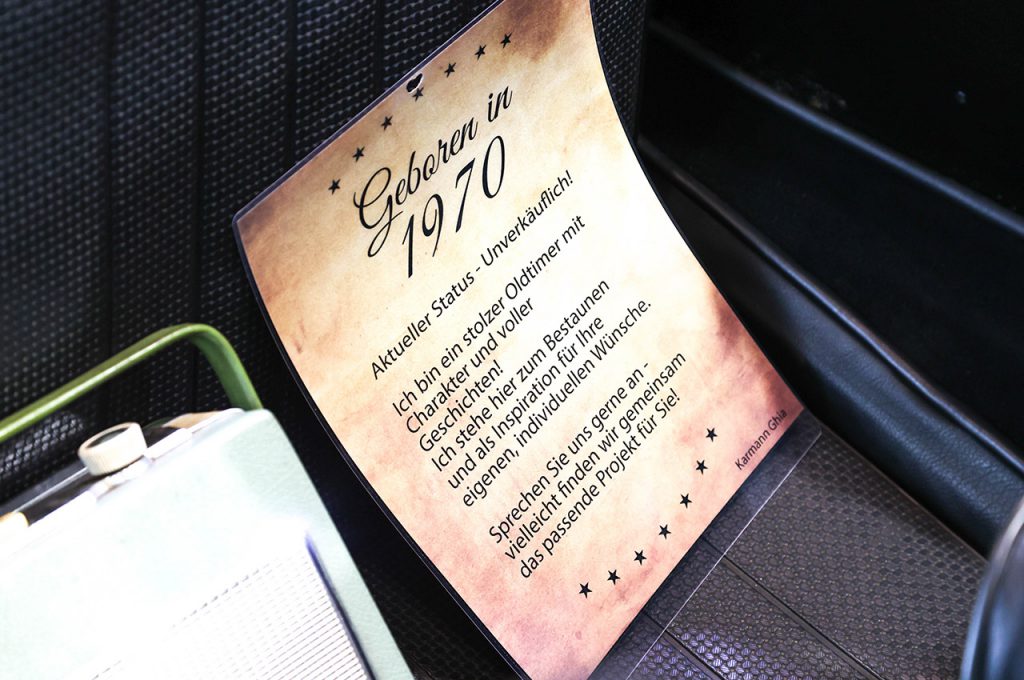 Geboren in
1970
Aktueller Status - Unverkäuflich!
Ich bin ein stolzer Oldtimer mit
Charakter und voller
Geschichten!
Ich stehe hier zum Bestaunen
und als Inspiration für Ihre
eigenen, individuellen Wünsche.
Sprechen Sie uns gerne an -
vielleicht finden wir gemeinsam
das passende Projekt für Sie!
Karmann Ghia